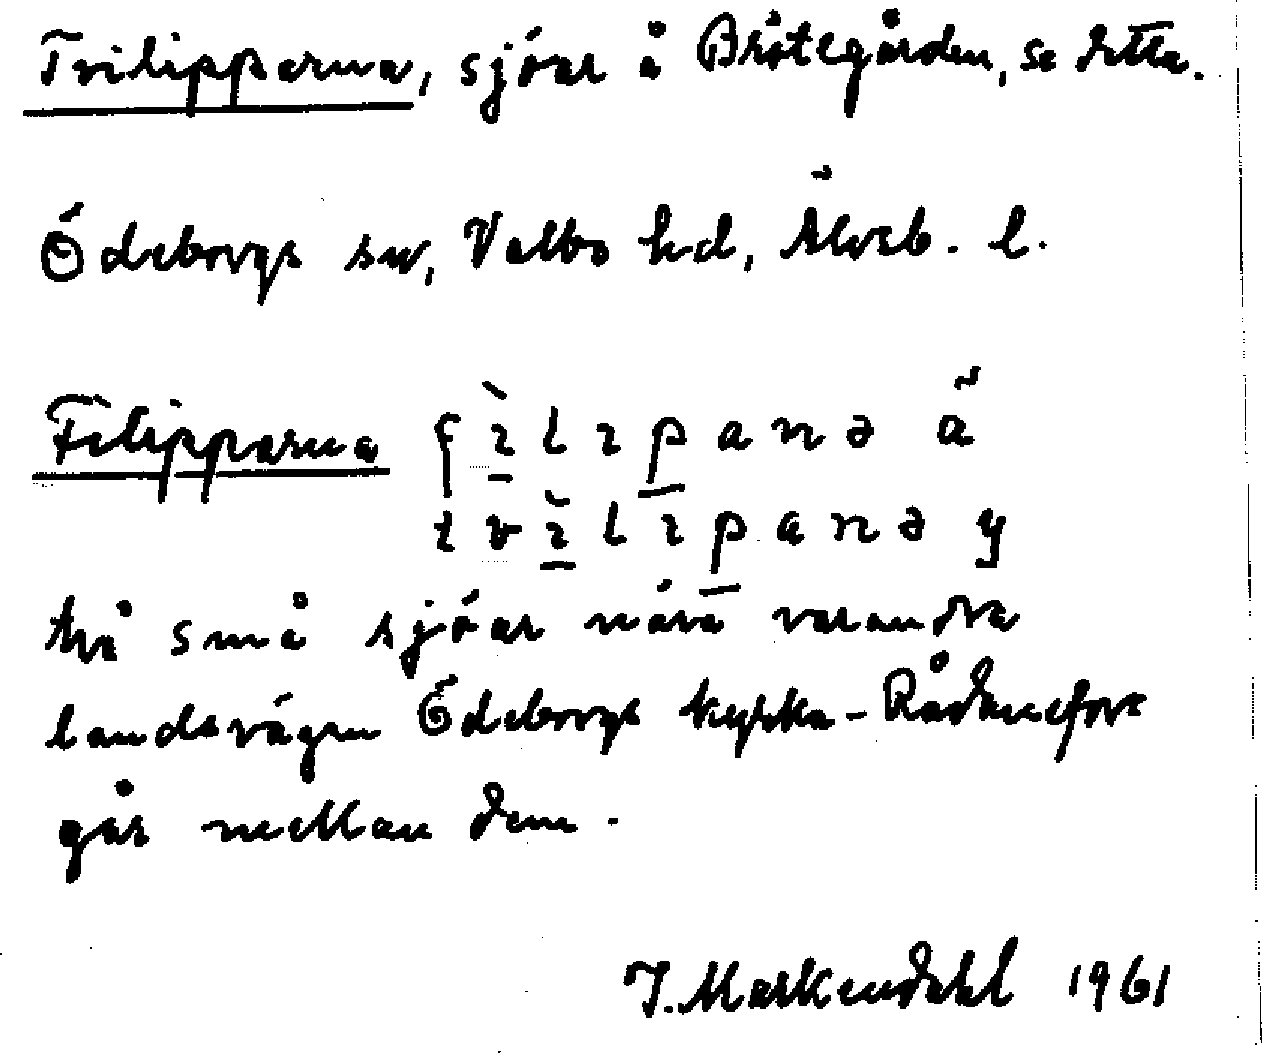 Tvilipparna, sjöar å Bråtegården, se detta.
Ödeborgs sn, Valbo hd, Älvsb. l.
Filipparna fìlɩpanə ä
tvìlɩpanə y
två små sjöar nära varandra
landsvägen Ödeborgs kyrka - Rådanefors
går mellan dem.
I. Markendahl 1961